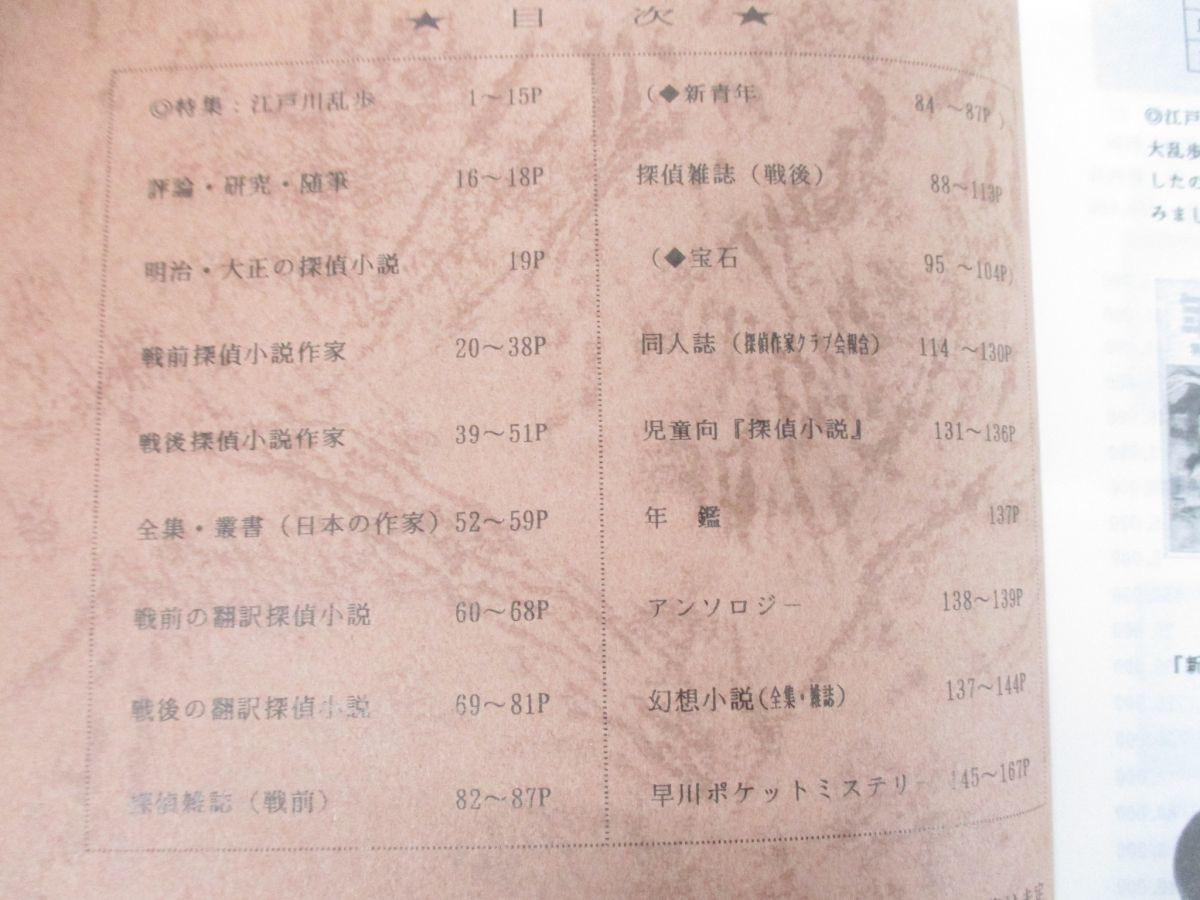 ★ 目 次 ★
◎特集:江戸川乱歩 1～15P
評論・研究・随筆 16～18P
明治・大正の探偵小説 19P
戦前探偵小説作家 20～38P
戦後探偵小説作家 39～51P
全集・叢書(日本の作家) 52～59P
戦前の翻訳探偵小説 60～68P
戦後の翻訳探偵小説 69～81P
探偵雑誌(戦前) 82～87P
(◆新青年 84 ～87P)
探偵雑誌(戦後) 88～113P
(◆宝石 95 ～104P)
同人誌(探偵作家クラブ会報含) 114 ～130P
児童向『探偵小説』 131～136P
年 鑑 137P
アンソロジー 138～139P
幻想小説(全集・雑誌) 137～144P
早川ポケットミステリー 145～167P
◎江戸
大乱歩
したの
みまし
『新